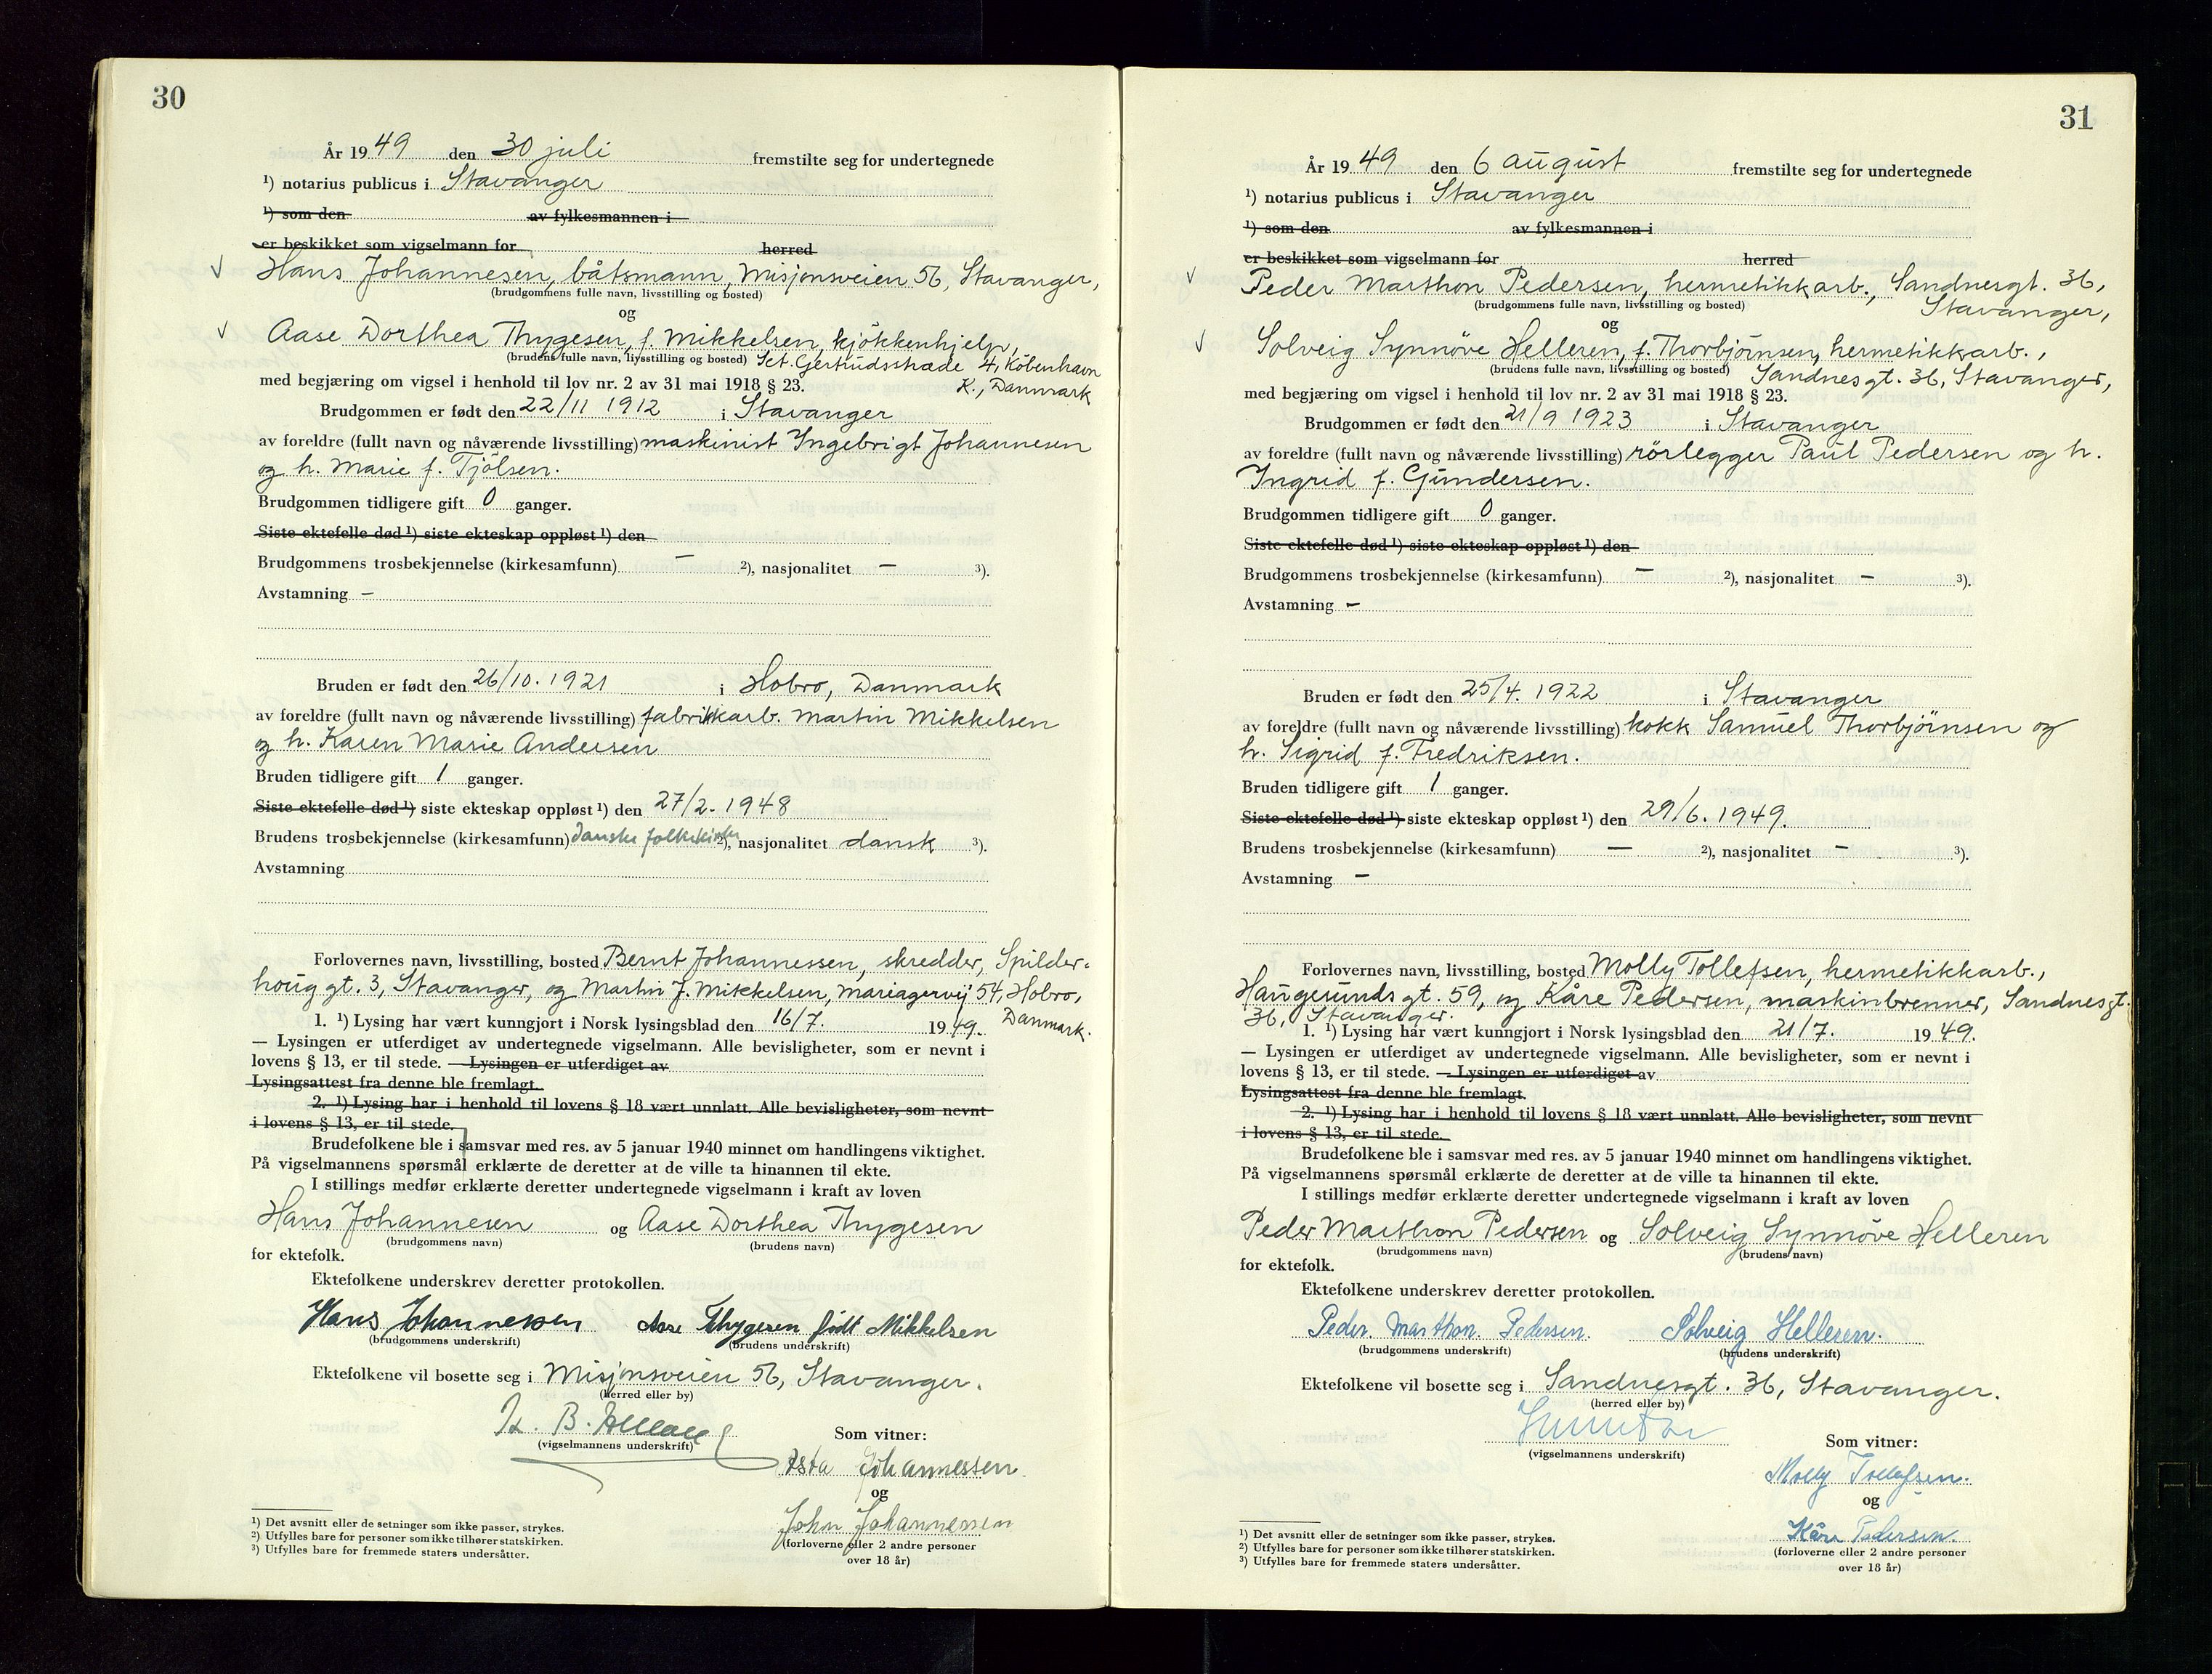 30
År 1949 den 30 juli fremstilte seg for undertegnede
¹) notarius publicus i Stavanger
¹) som den av fylkesmannen i
er beskikket som vigselmann for herred
√ Hans Johannesen, båtsmann, Misjonsveien 56, Stavanger,
(brudgommens fulle navn, livsstilling og bosted)
og
√ Aase Dorthea Thygesen, f. Mikkelsen, kjökkenhjelp,
(brudens fulle navn, livsstilling og bosted) Sct. Gertrudsstræde 4, København
med begjæring om vigsel i henhold til lov nr. 2 av 31 mai 1918 § 23. K., Danmark
Brudgommen er født den 22/11 1912 i Stavanger
av foreldre (fullt navn og nåværende livsstilling) maskinist Ingebrigt Johannesen
og h. Marie f. Tjölsen.
Brudgommen tidligere gift 0 ganger.
Siste ektefelle død ¹) siste ekteskap oppløst ¹) den
Brudgommens trosbekjennelse (kirkesamfunn) — ²), nasjonalitet — ³).
Avstamning —
Bruden er født den 26/10. 1921 i Hobro, Danmark
av foreldre (fullt navn og nåværende livsstilling) fabrikkarb. Martin Mikkelsen
og h. Karen Marie Andersen
Bruden tidligere gift 1 ganger.
Siste ektefelle død ¹) siste ekteskap oppløst ¹) den 27/2. 1948
Brudens trosbekjennelse (kirkesamfunn) danske folkekirke ²), nasjonalitet dansk ³).
Avstamning
Forlovernes navn, livsstilling, bosted Bernt Johannessen, skredder, Spilder-
houggt. 3, Stavanger, og Martin J. Mikkelsen, Mariagervej 54, Hobro,
1. ¹) Lysing har vært kunngjort i Norsk lysingsblad den 16/7. 1949. Danmark.
— Lysingen er utferdiget av undertegnede vigselmann. Alle bevisligheter, som er nevnt i
lovens § 13, er til stede. — Lysingen er utferdiget av
Lysingsattest fra denne ble fremlagt.
2. ¹) Lysing har i henhold til lovens § 18 vært unnlatt. Alle bevisligheter, som nevnt
i lovens § 13, er til stede.
Brudefolkene ble i samsvar med res. av 5 januar 1940 minnet om handlingens viktighet.
På vigselmannens spørsmål erklærte de deretter at de ville ta hinannen til ekte.
I stillings medfør erklærte deretter undertegnede vigselmann i kraft av loven
Hans Johannesen og Aase Dorthea Thygesen
(brudgommens navn) (brudens navn)
for ektefolk.
Ektefolkene underskrev deretter protokollen.
Hans Johannessen Aase Thygesen født Mikkelsen
(brudgommens underskrift) (brudens underskrift)
Ektefolkene vil bosette seg i Misjonsveien 56, Stavanger.
(herred eller by)
B.
(vigselmannens underskrift)
Som vitner:
Asta Johannessen
og
John Johannessen
(forloverne eller 2 andre personer
over 18 år)
¹) Det avsnitt eller de setninger som ikke passer, strykes.
²) Utfylles bare for personer som ikke tilhører statskirken.
³) Utfylles bare for fremmede staters undersåtter.
31
År 1949 den 6 august fremstilte seg for undertegnede
¹) notarius publicus i Stavanger
¹) som den av fylkesmannen i
er beskikket som vigselmann for herred
√ Peder Marthon Pedersen, hermetikkarb., Sandnesgt. 36,
(brudgommens fulle navn, livsstilling og bosted) Stavanger,
og
√ Solveig Synnöve Helleren, f. Thorbjörnsen, hermetikkarb.,
(brudens fulle navn, livsstilling og bosted) Sandnesgt. 36, Stavanger,
med begjæring om vigsel i henhold til lov nr. 2 av 31 mai 1918 § 23.
Brudgommen er født den 21/9 1923 i Stavanger
av foreldre (fullt navn og nåværende livsstilling) rörlegger Paul Pedersen og h.
Ingrid f. Gundersen.
Brudgommen tidligere gift 0 ganger.
Siste ektefelle død ¹) siste ekteskap oppløst ¹) den
Brudgommens trosbekjennelse (kirkesamfunn) — ²), nasjonalitet — ³).
Avstamning —
Bruden er født den 25/4. 1922 i Stavanger
av foreldre (fullt navn og nåværende livsstilling) kokk Samuel Thorbjörnsen og
h. Sigrid f. Fredriksen.
Bruden tidligere gift 1 ganger.
Siste ektefelle død ¹) siste ekteskap oppløst ¹) den 29/6. 1949.
Brudens trosbekjennelse (kirkesamfunn) — ²), nasjonalitet — ³).
Avstamning —
Forlovernes navn, livsstilling, bosted Molly Tollefsen, hermetikkarb.,
Haugesundsgt. 59, og Kåre Pedersen, maskinbrenner, Sandnesgt.
36, Stavanger.
1. ¹) Lysing har vært kunngjort i Norsk lysingsblad den 21/7. 1949.
— Lysingen er utferdiget av undertegnede vigselmann. Alle bevisligheter, som er nevnt i
lovens § 13, er til stede. — Lysingen er utferdiget av
Lysingsattest fra denne ble fremlagt.
2. ¹) Lysing har i henhold til lovens § 18 vært unnlatt. Alle bevisligheter, som nevnt
i lovens § 13, er til stede.
Brudefolkene ble i samsvar med res. av 5 januar 1940 minnet om handlingens viktighet.
På vigselmannens spørsmål erklærte de deretter at de ville ta hinannen til ekte.
I stillings medfør erklærte deretter undertegnede vigselmann i kraft av loven
Peder Marthon Pedersen og Solveig Synnöve Helleren
(brudgommens navn) (brudens navn)
for ektefolk.
Ektefolkene underskrev deretter protokollen.
Peder Marthon Pedersen. Solveig Helleren.
(brudgommens underskrift) (brudens underskrift)
Ektefolkene vil bosette seg i Sandnesgt. 36, Stavanger.
(herred eller by)
(vigselmannens underskrift)
Som vitner:
Molly Tollefsen.
og
Kåre Pedersen.
(forloverne eller 2 andre personer
over 18 år)
¹) Det avsnitt eller de setninger som ikke passer, strykes.
²) Utfylles bare for personer som ikke tilhører statskirken.
³) Utfylles bare for fremmede staters undersåtter.